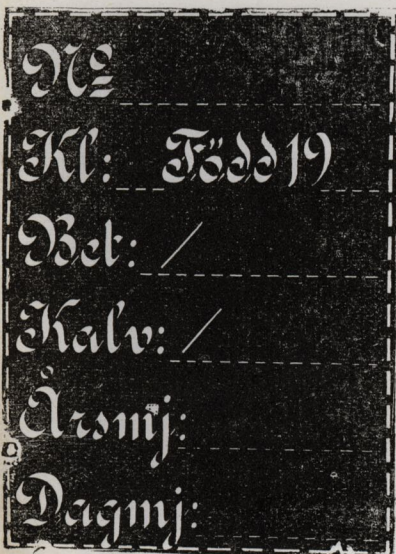 Nº
Kl: Född 19
Bet: /
Kalv: /
Årsmj:
Dagmj: